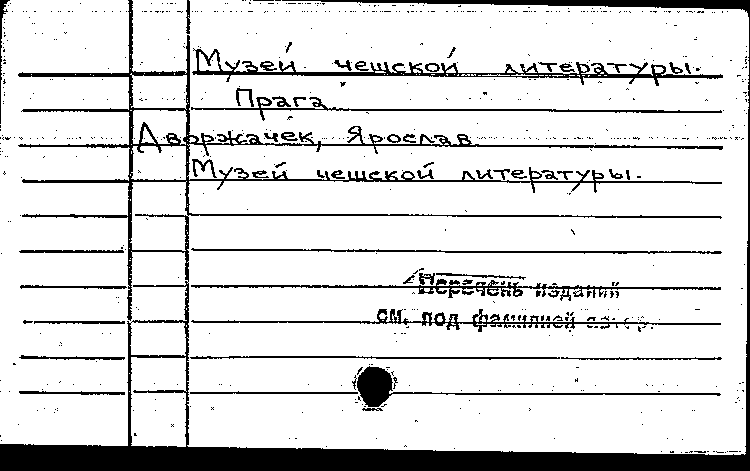 Музей чешской литературы.
Прага
Дворжачек, Ярослав
Музей чешской литературы.
Перечень изданий
см. под фамилией автор.